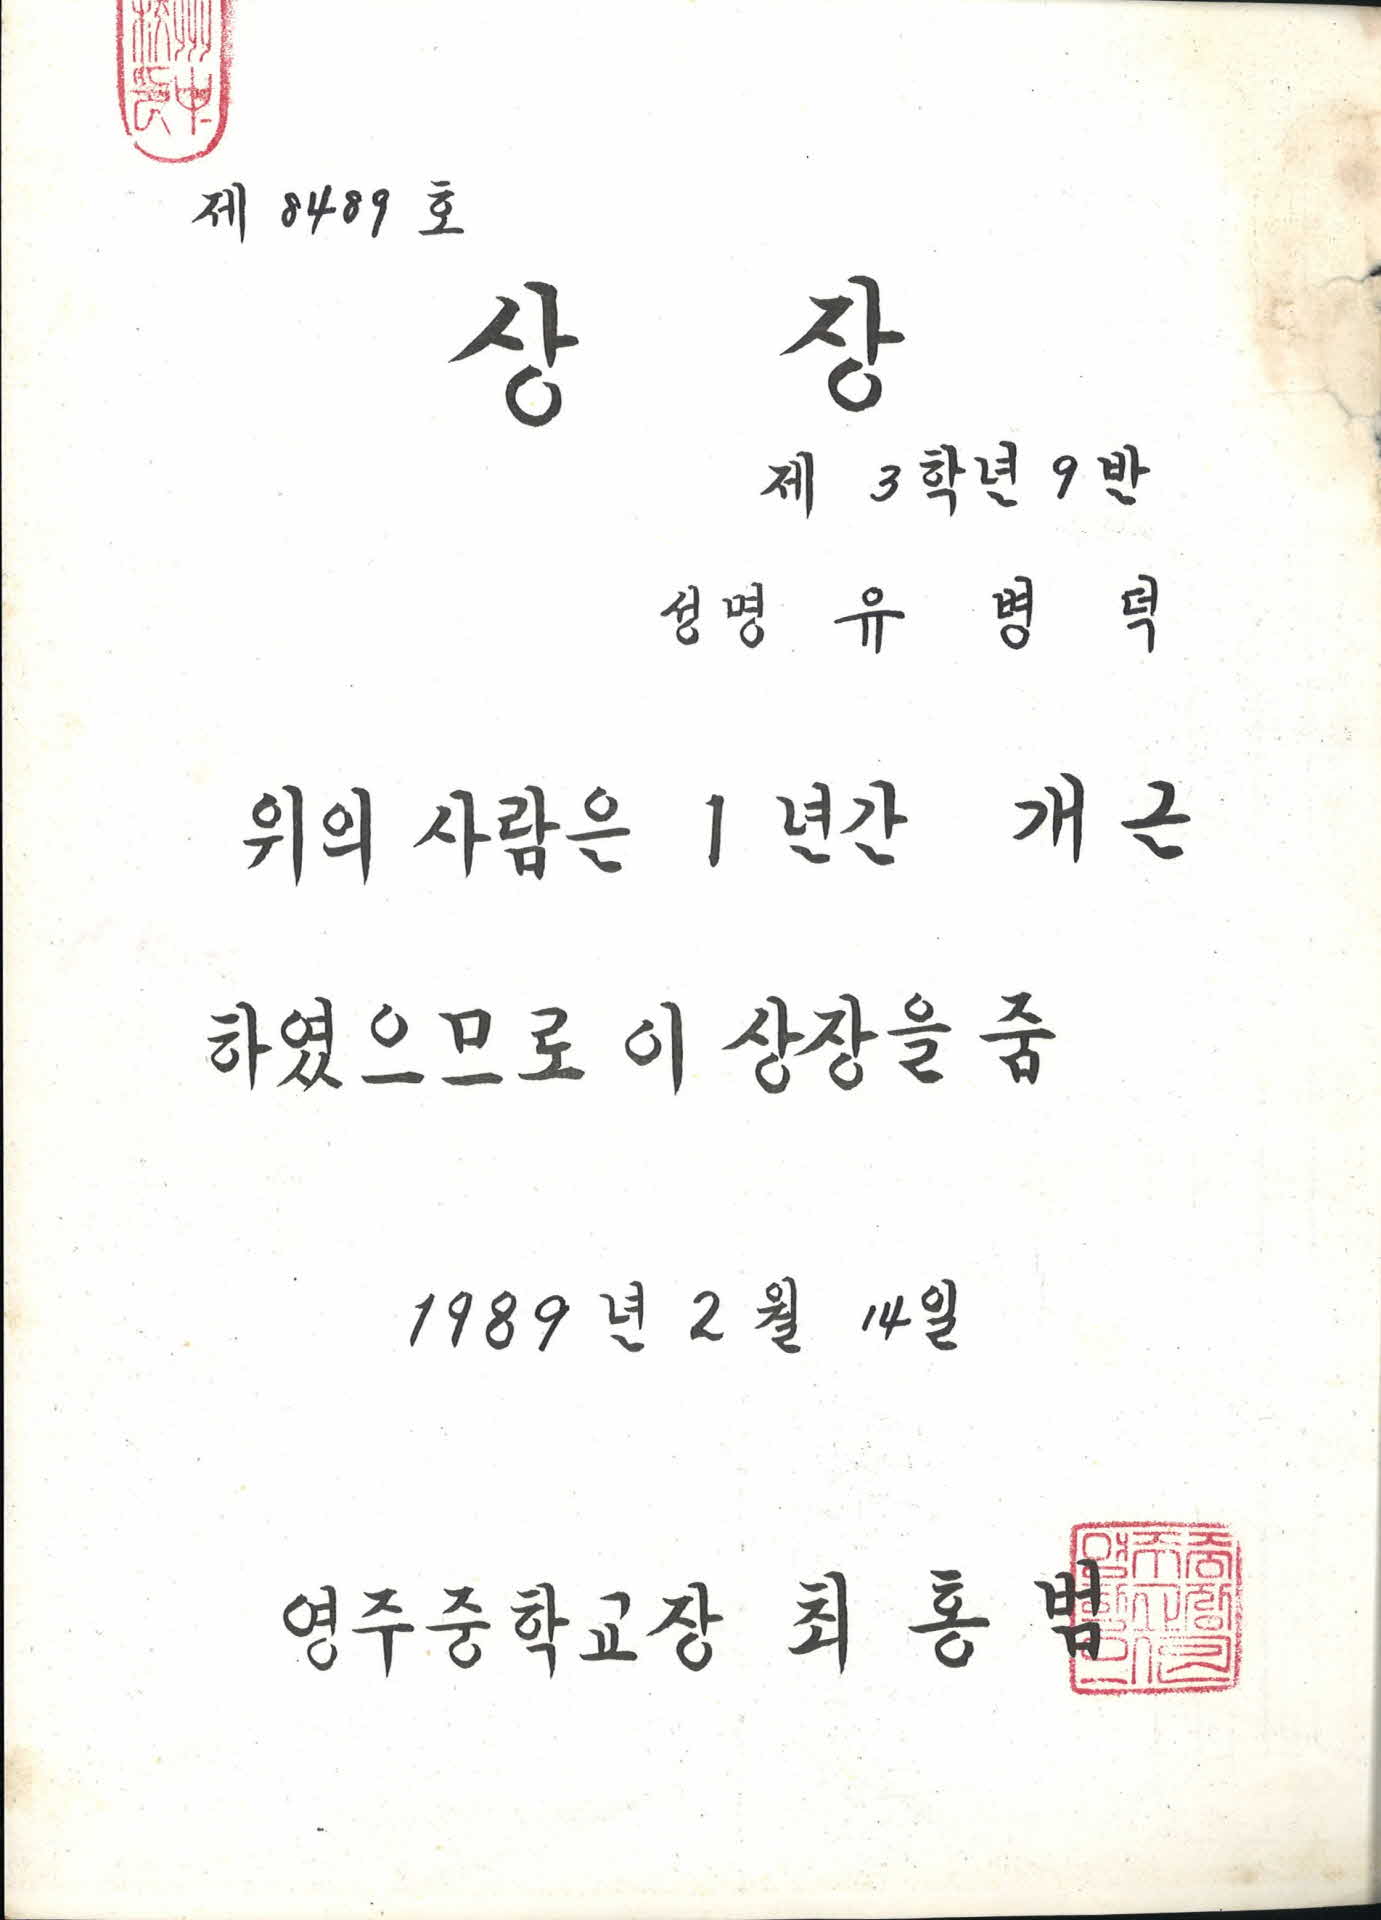 제 8489 호
상 장
제 3학년 9반
성명 유 병 덕
위의 사람은 1 년간 개근
하였으므로 이 상장을 줌
1989 년 2 월 14일
영주중학교장 최 홍 범